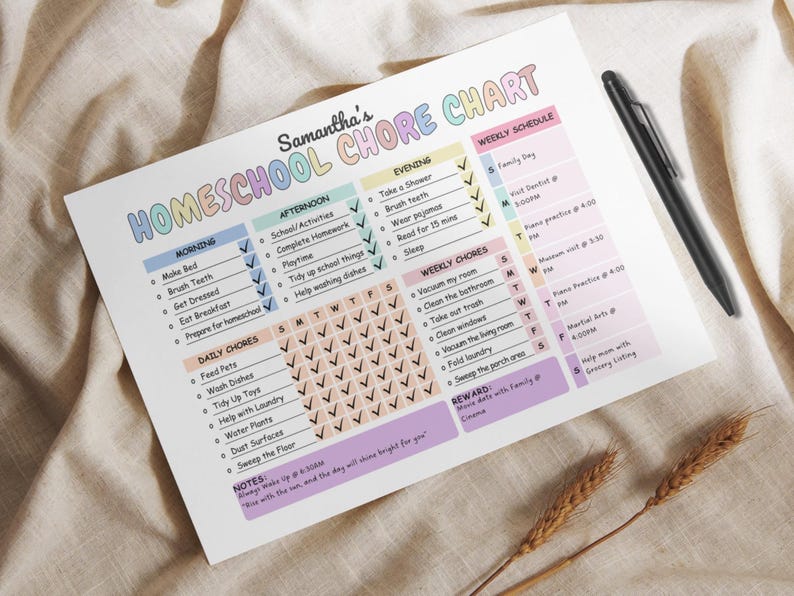 Samantha's
HOMESCHOOL CHORE CHART
MORNING
Make Bed
Brush Teeth
Get Dressed
Eat Breakfast
Prepare for homeschool
AFTERNOON
School/Activities
Complete Homework
Playtime
Tidy up school things
Help washing dishes
EVENING
Take a Shower
Brush teeth
Wear pajamas
Read for 15 mins
Sleep
WEEKLY SCHEDULE
S Family Day
M Visit Dentist @
3:00PM
T Piano practice @ 4:00
PM
W Museum visit @ 3:30
PM
T Piano Practice @ 4:00
PM
F Martial Arts @
4:00PM
S Help mom with
Grocery Listing
DAILY CHORES S M T W T F S
Feed Pets
Wash Dishes
Tidy Up Toys
Help with Laundry
Water Plants
Dust Surfaces
Sweep the Floor
WEEKLY CHORES
Vacuum my room S
Clean the bathroom M
Take out trash T
Clean windows W
Vacuum the living room T
Fold laundry F
Sweep the porch area S
NOTES:
Always Wake Up @ 6:30AM
"Rise with the sun, and the day will shine bright for you"
REWARD:
Movie date with Family @
Cinema